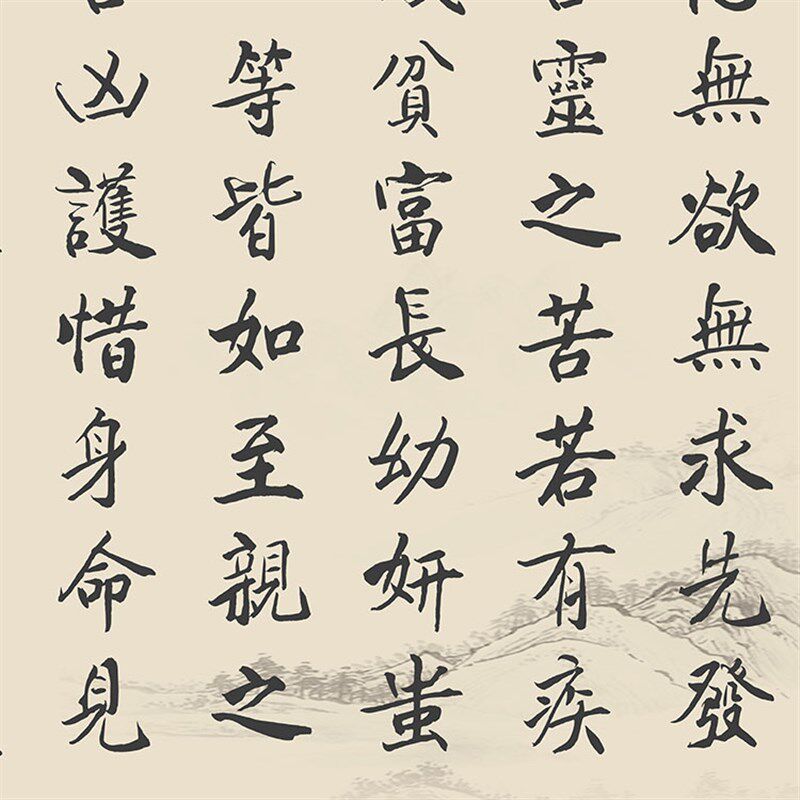 無欲無求先發
靈之苦若有疾
貧富長幼妍蚩
等皆如至親之
凶護惜身命見